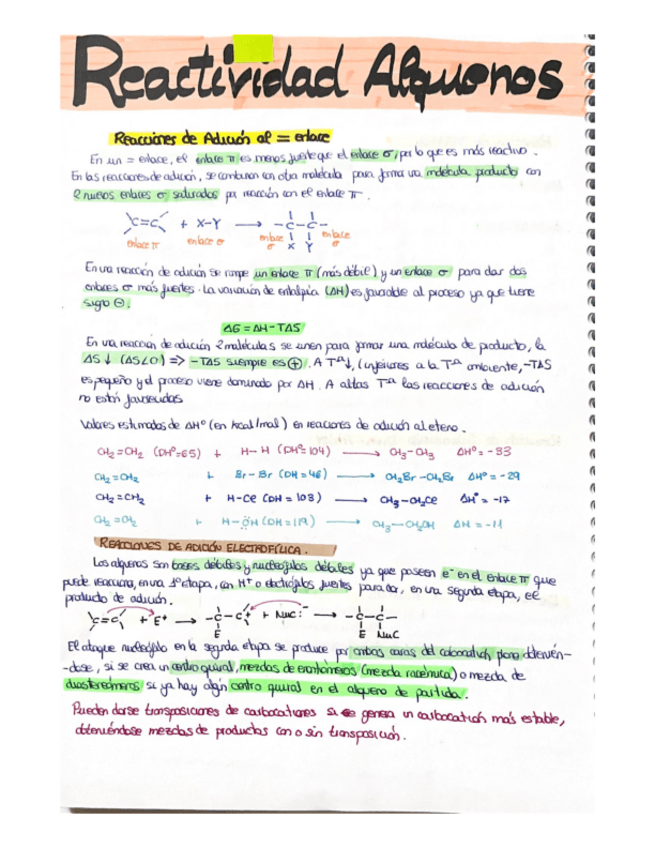 Reactividad Alquenos
Reacciones de Adición al = enlace
En un = enlace, el enlace π es menos fuerte que el enlace σ, por lo que es más reactivo.
En las reacciones de adición, se combinan con otra molécula para formar una molécula producto con
2 nuevos enlaces σ saturados por reacción con el enlace π.
C=C + X-Y → -C-C-
enlace π enlace σ enlace σ X Y enlace σ
En una reacción de adición se rompe un enlace π (más débil) y un enlace σ para dar dos
enlaces σ más fuertes. La variación de entalpía (ΔH) es favorable al proceso ya que tiene
signo ⊖.
ΔG = ΔH - TΔS
En una reacción de adición 2 moléculas se unen para formar una molécula de producto, la
ΔS ↓ (ΔS<0) => -TΔS siempre es ⊕. A Tª↓, (inferiores a la Tª ambiente, -TΔS
es pequeño y el proceso viene dominado por ΔH. A altas Tª las reacciones de adición
no están favorecidas
Valores estimados de ΔHº (en kcal/mol) en reacciones de adición al eteno.
CH2=CH2 (DHº=65) + H-H (DHº=104) → CH3-CH3 ΔHº = -33
CH2=CH2 + Br-Br (DH=46) → CH2Br-CH2Br ΔHº = -29
CH2=CH2 + H-Cl (DH=103) → CH3-CH2Cl ΔHº = -17
CH2=CH2 + H-ÖH (DH=119) → CH3-CH2OH ΔH = -11
REACCIONES DE ADICIÓN ELECTROFÍLICA.
Los alquenos son bases débiles y nucleófilos débiles ya que poseen e⁻ en el enlace π que
puede reaccionar, en una 1º etapa, con H⁺ o electrófilos fuertes para dar, en una segunda etapa, el
producto de adición.
C=C + E⁺ → -C-C⁺ + Nuc:⁻ → -C-C-
E E Nuc
El ataque nucleófilo en la segunda etapa se produce por ambas caras del carbocatión plano obtenién-
-dose, si se crea un centro quiral, mezclas de enantiómeros (mezcla racémica) o mezcla de
diastereómeros si ya hay algún centro quiral en el alqueno de partida.
Pueden darse transposiciones de carbocationes si se genera un carbocatión más estable,
obteniéndose mezclas de productos con o sin transposición.